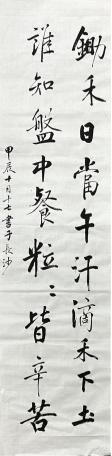 鋤禾日當午汗滴禾下土
誰知盤中餐粒〻皆辛苦
甲辰十月十七書于長沙